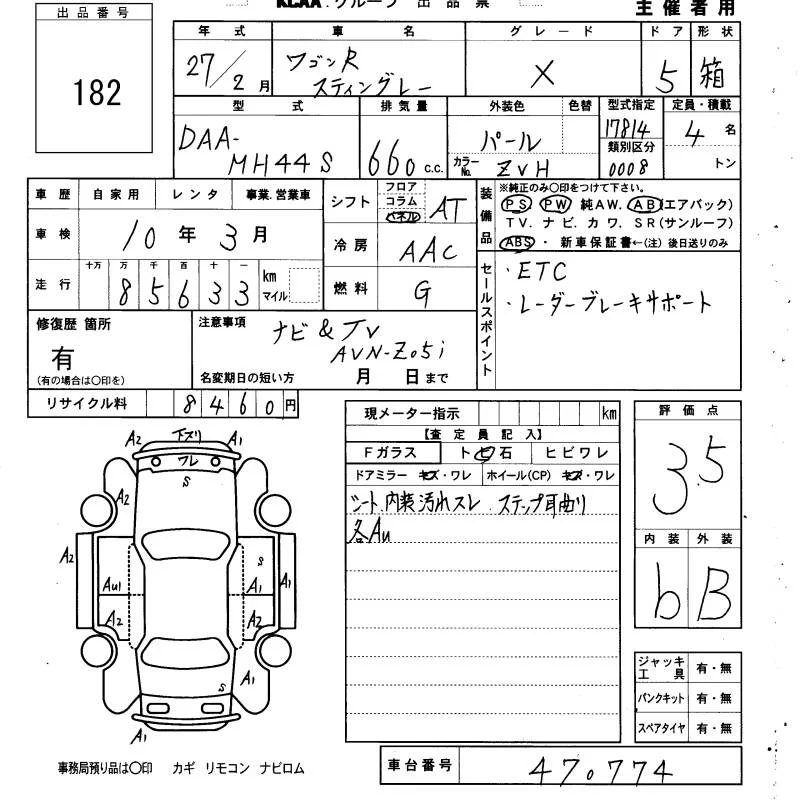 KCAA.グループ 出品票
主催者用
出品番号
182
年式 車名 グレード ドア 形状
27/2月 ワゴンR スティングレー X 5 箱
型式 排気量 外装色 色替 型式指定 定員・積載
DAA-MH44S 660c.c. パール 17814 4名
カラーNo. ZVH 類別区分 0008 トン
車歴 自家用 レンタ 事業.営業車
車検 10年3月
走行 十万 万 千 百 十 一
85633 km マイル
シフト フロア コラム パネル AT
冷房 AAC
燃料 G
装備品 ※純正のみ〇印をつけて下さい。
PS PW 純AW. AB(エアバック)
TV. ナビ. カワ. SR(サンルーフ)
ABS・新車保証書←(注)後日送りのみ
セールスポイント
・ETC
・レーダーブレーキサポート
修復歴 箇所
有
(有の場合は〇印を)
注意事項
ナビ&TV
AVN-Z05i
名変期日の短い方 月 日まで
リサイクル料 8460円
現メーター指示 km
【査定員記入】
Fガラス トビ石 ヒビワレ
ドアミラー キズ・ワレ ホイール(CP) キズ・ワレ
シート、内装汚れスレ ステップ耳曲り
各Au
評価点
3.5
内装 外装
b B
ジャッキ 工具 有・無
パンクキット 有・無
スペアタイヤ 有・無
A2 下ズリ A1
ワレ
S
A2
A2 S
AU1 A1 A1
A2 A2
A1
S
A1
事務局預り品は〇印 カギ リモコン ナビロム
車台番号 470774